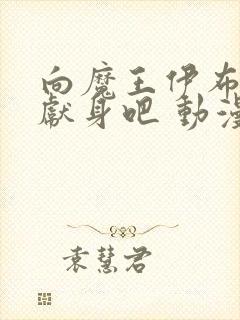 向魔王伊布
獻身吧 動漫
袁慧君